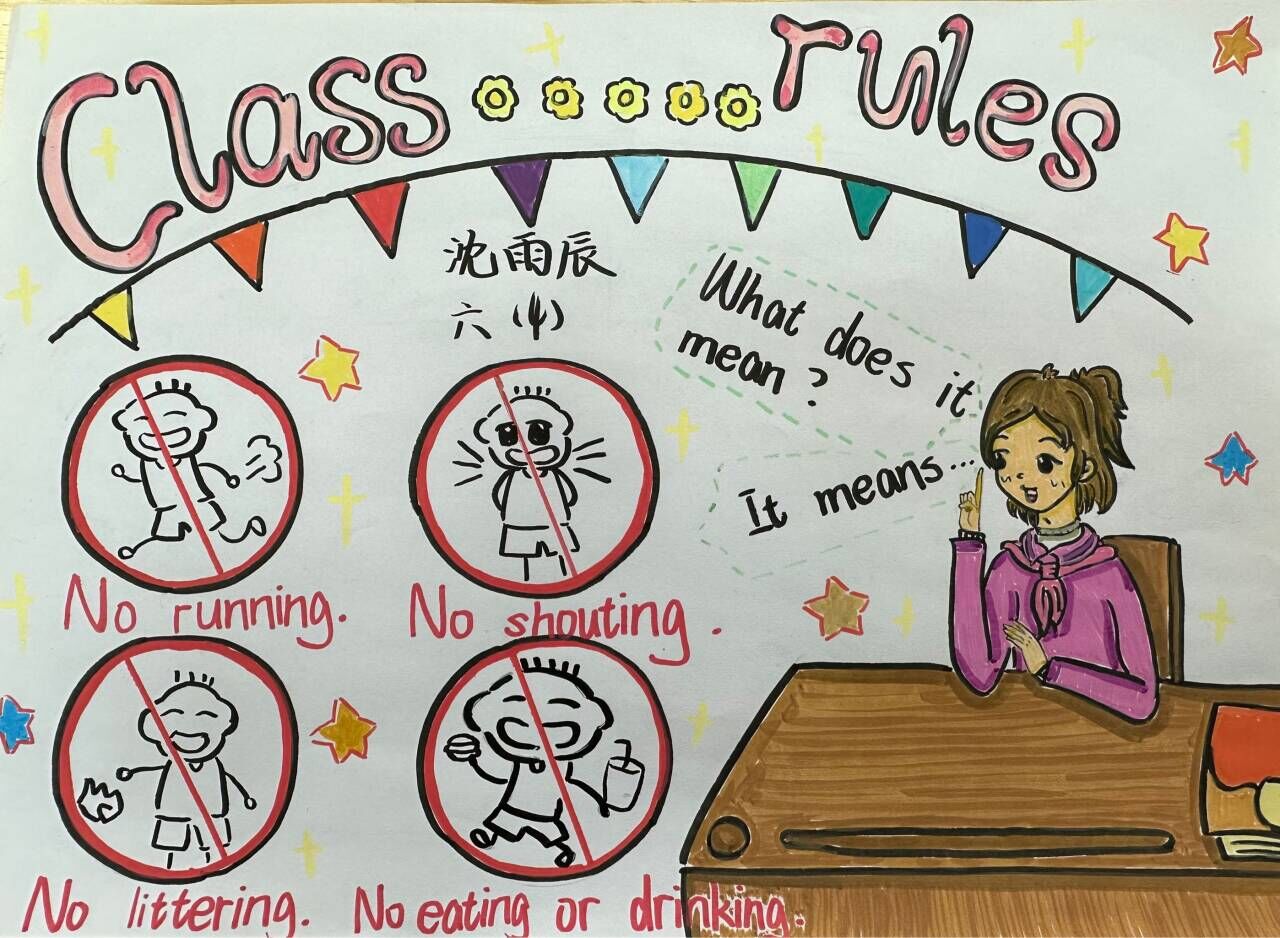 Class rules
沈雨辰
六(4)
What does it
mean?
It means...
No running.
No shouting.
No littering.
No eating or drinking.